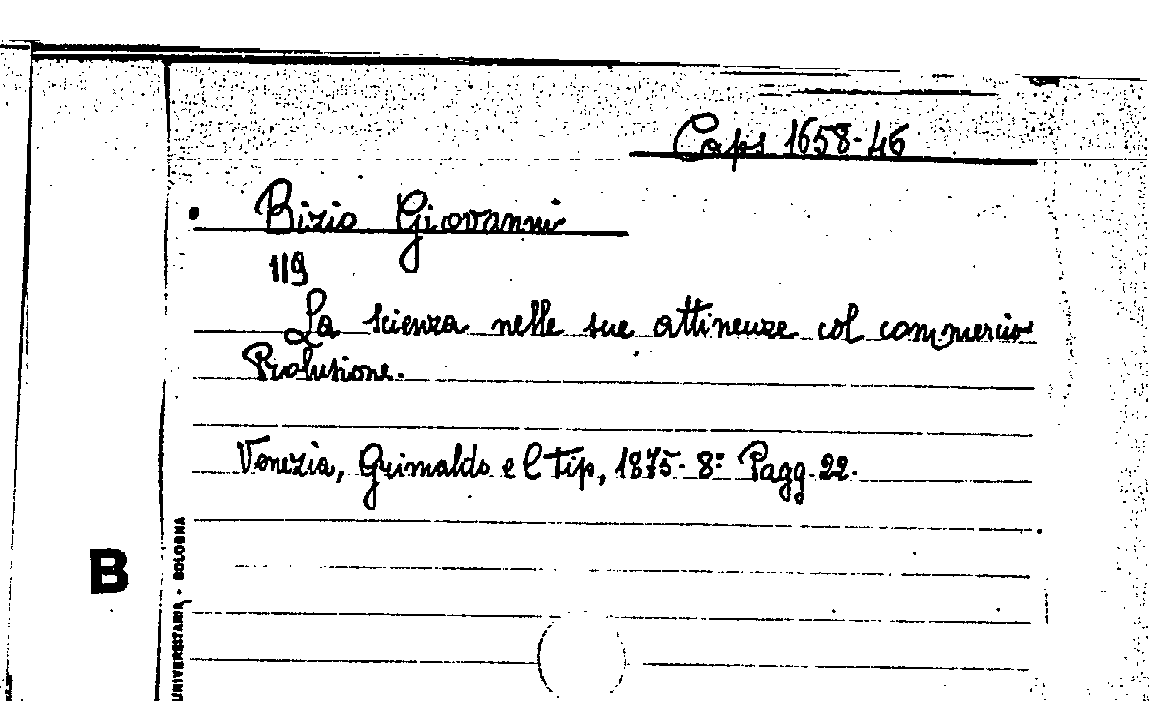 Caps 1658-46
Bizio Giovanni
119
La scienza nelle sue attinenze col commercio
Prolusione.
Venezia, Grimaldo e C tip, 1875- 8º Pagg. 22.
B
UNIVERSITARIA - BOLOGNA